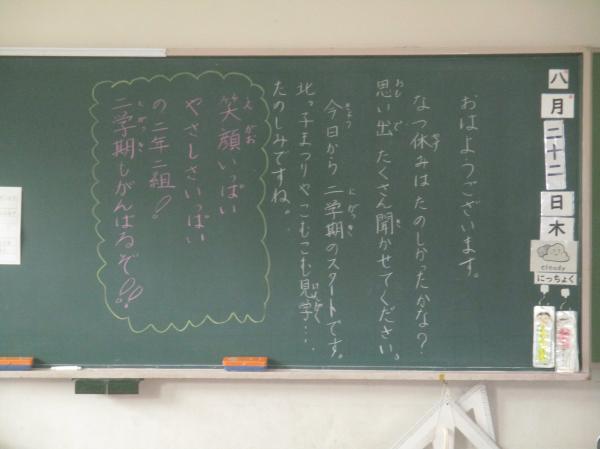 八
月
二十二
日
木
cloudy
にっちょく
おはようございます。
なつ休みはたのしかったかな？
思い出たくさん聞かせてください。
今日から二学期のスタートです。
北っ子まつりやこむこむ見学…
たのしみですね。
笑顔いっぱい
やさしさいっぱい
の二年二組！
二学期もがんばるぞ!!